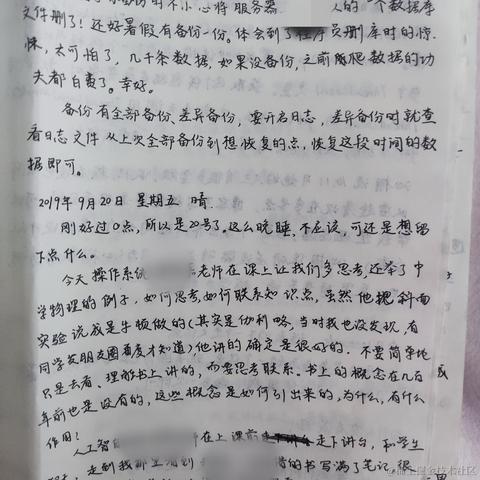 不小心将 服务器 人的一个数据库
文件删了！还好暑假有备份一份。体会到了程序员删库时的惊
悚，太可怕了，几千条数据，如果没备份，之前爬数据的功
夫都白费了。幸好。
备份有全部备份、差异备份，要开启日志，差异备份时就查
看日志文件从上次全部备份到想恢复的点，恢复这段时间的数
据即可。
2019年9月20日 星期五 晴.
刚好过0点，所以是20号了，这么晚睡，不应该，可还是想留
下点什么。
今天操作系统 老师在课上让我们多思考，还举了中
学物理的例子，如何思考，如何联系知识点，虽然他把斜面
实验说成是牛顿做的（其实是伽利略，当时我也没发现，有
同学发朋友圈看度才知道）他讲的确定是很好的. 不要简单地
只是去看、理解书上讲的，而要思考联系。书上的概念在几百
年前也是没有的，这些概念是如何引出来的，为什么，有什么
作用！
人工智 师在上课前走下讲台，和学生
走到我那里 的书写满了笔记，很
@稀土掘金技术社区